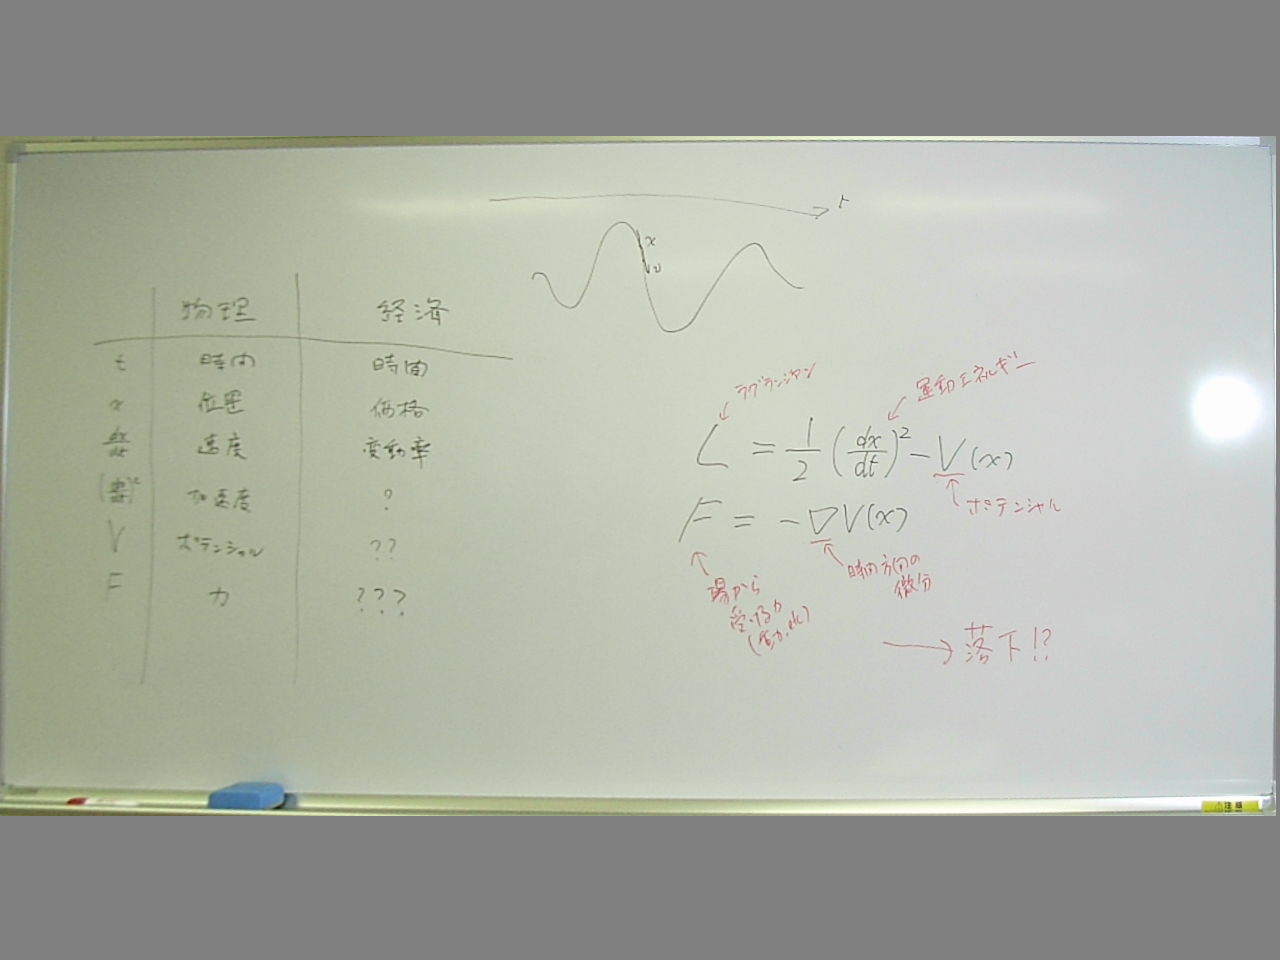 t
x
v
物理 経済
t 時間 時間
x 位置 価格
dx/dt 速度 変動率
加速度 ?
V ポテンシャル ??
F 力 ???
ラグランジャン
運動エネルギー
L = 1/2 (dx/dt)² - V(x)
ポテンシャル
F = - ∇V(x)
時間方向の
微分
場から
受ける力
→ 落下!?
注意